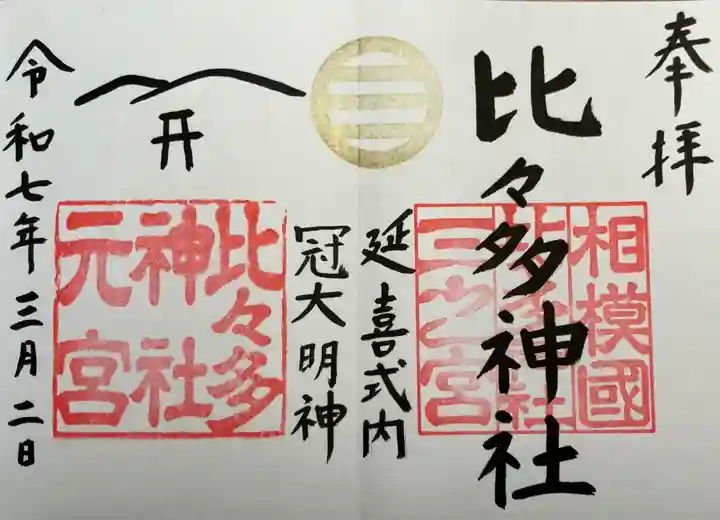 奉拝
相模國
比々多神社
三之宮
比々多神社
延喜式内
冠大明神
比々多
神社
元宮
令和七年三月二日